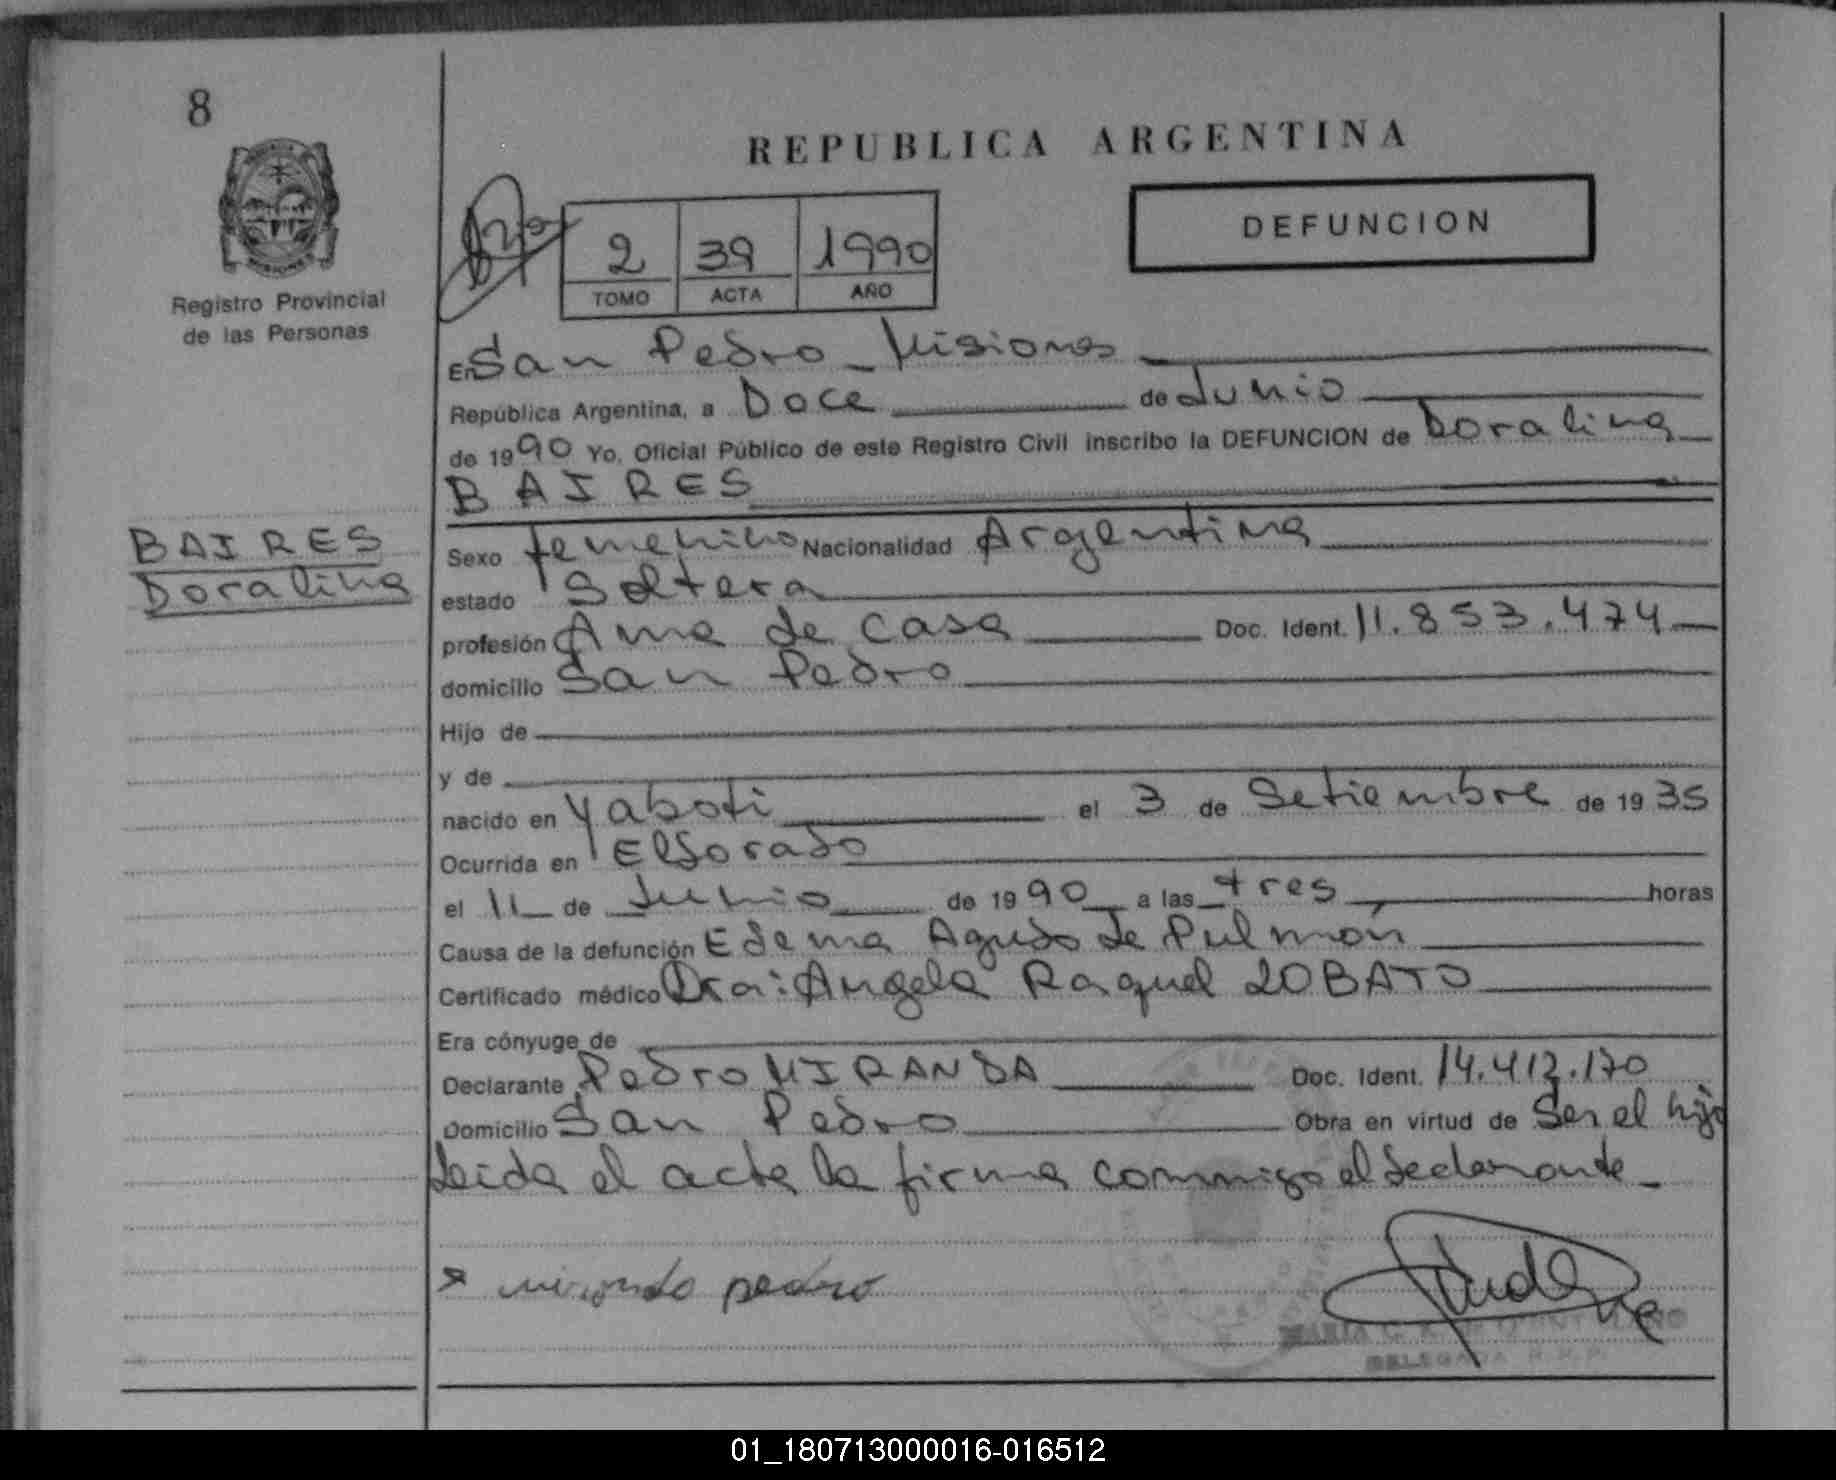 8
REPUBLICA ARGENTINA
DEFUNCION
2 39 1990
TOMO ACTA AÑO
MISIONES
Registro Provincial
de las Personas
En San Pedro - Misiones
República Argentina, a Doce de Junio
de 1990 Yo, Oficial Público de este Registro Civil inscribo la DEFUNCION de Doralina
BAIRES
BAIRES
Doralina
Sexo femenino Nacionalidad Argentina
estado Soltera
profesión Ama de casa Doc. Ident. 11.853.474
domicilio San Pedro
Hijo de
y de
nacido en Yaboti el 3 de Setiembre de 1935
Ocurrida en Eldorado
el 11 de Junio de 1990 a las tres horas
Causa de la defunción Edema Agudo de Pulmón
Certificado médico Dra: Angela Raquel LOBATO
Era cónyuge de
Declarante Pedro MIRANDA Doc. Ident. 14.412.170
Domicilio San Pedro Obra en virtud de Ser el hijo
Leida el acta la firma conmigo el declarante
miranda pedro
MARIA
DELEGADA R.P.P.
01_180713000016-016512